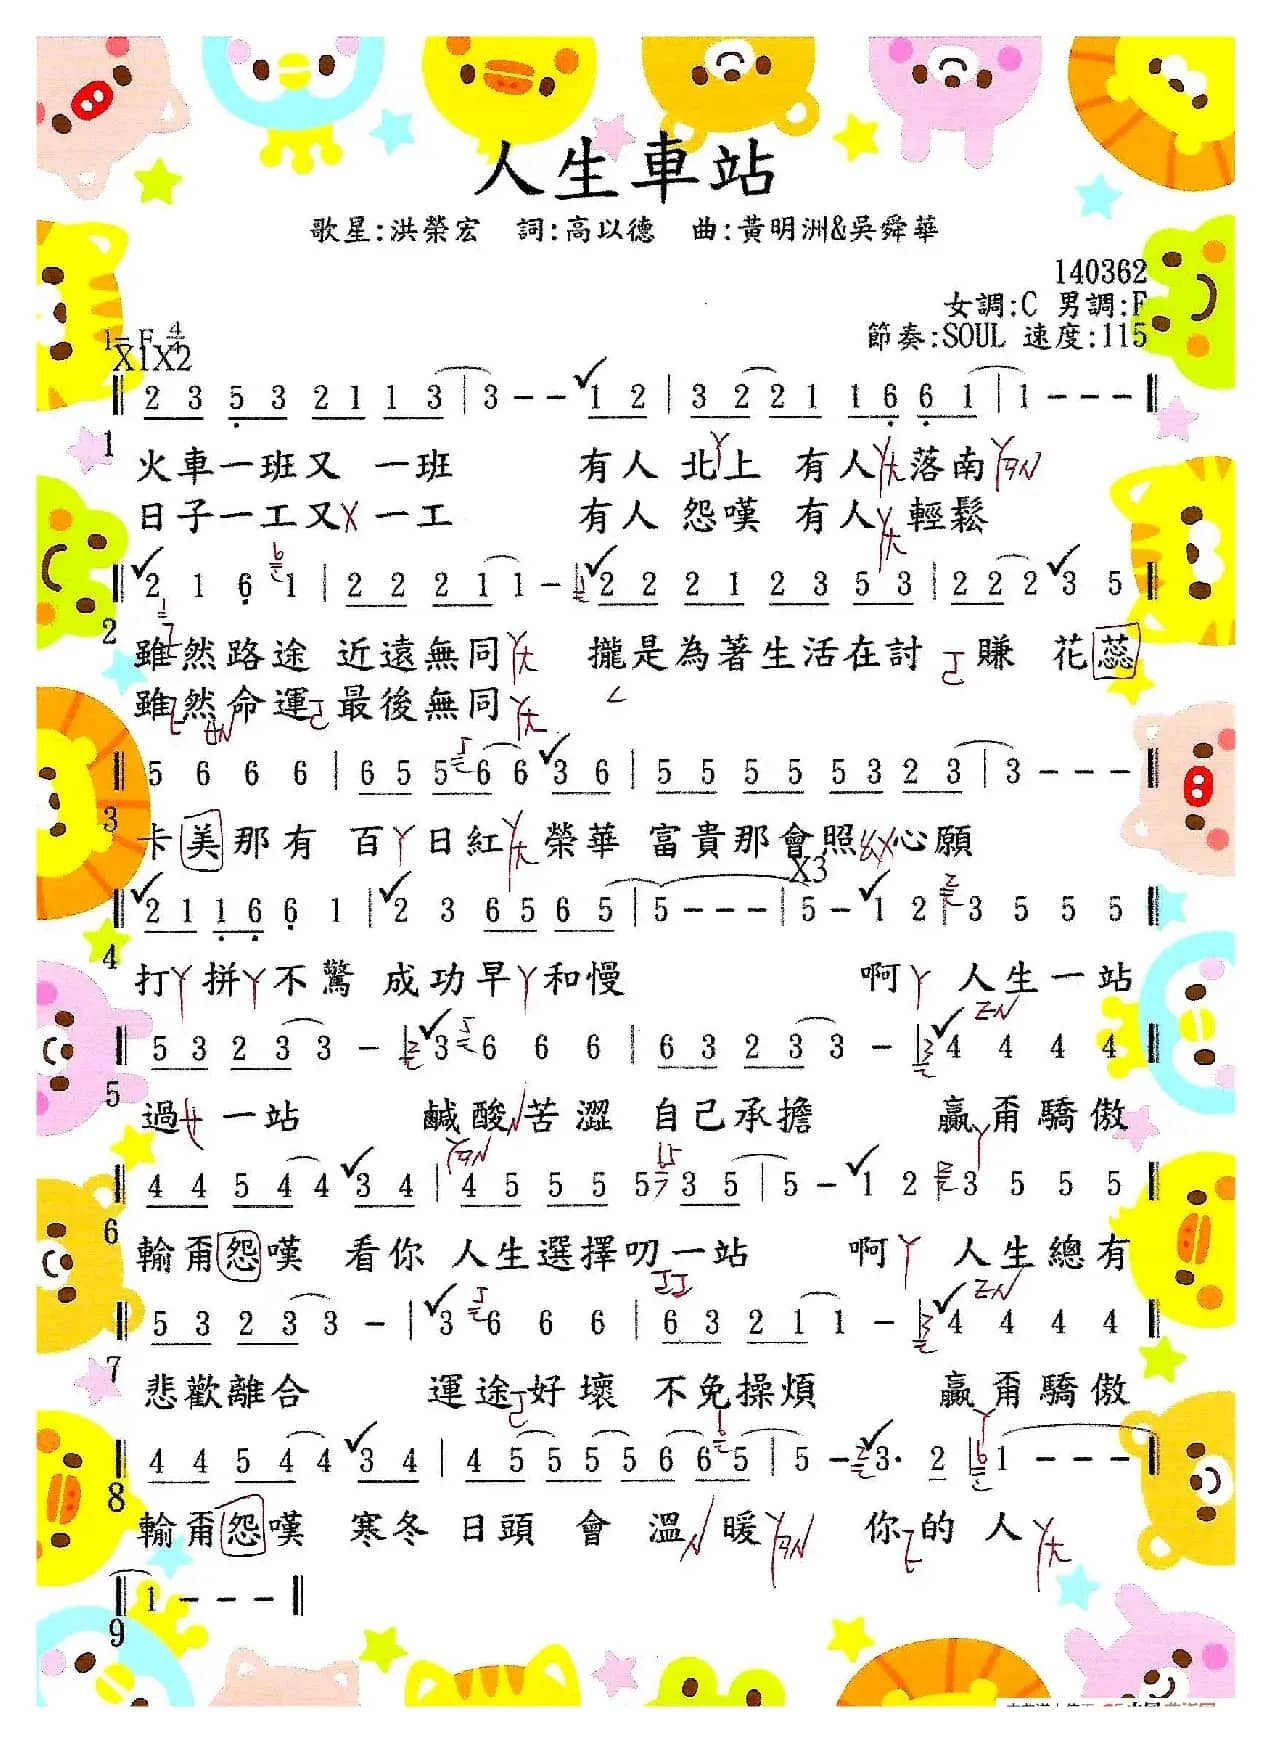 人生車站
歌星:洪榮宏 詞:高以德 曲:黃明洲&吳舜華
140362
女調:C 男調:F
1=F 4/4 節奏:SOUL 速度:115
X1X2
‖ 2 3 5 3 2 1 1 3 | 3 - - 1 2 | 3 2 2 1 1 6 6 1 | 1 - - - ‖
1 火車一班又 一班 有人 北上 有人 落南
日子一工又 一工 有人 怨嘆 有人 輕鬆
‖ 2 1 6 1 | 2 2 2 1 1 - | 2 2 2 1 2 3 5 3 | 2 2 2 3 5 ‖
2 雖然路途 近遠無同 攏是為著生活在討 賺 花蕊
雖然命運 最後無同
‖ 5 6 6 6 | 6 5 5 6 6 3 6 | 5 5 5 5 5 3 2 3 | 3 - - - ‖
3 卡美那有 百 日紅 榮華 富貴那會照 心願
X3
‖ 2 1 1 6 6 1 | 2 3 6 5 6 5 | 5 - - - | 5 - 1 2 | 3 5 5 5 ‖
4 打 拼 不驚 成功早 和慢 啊 人生一站
‖ 5 3 2 3 3 - | 3 6 6 6 | 6 3 2 3 3 - | 4 4 4 4 ‖
5 過 一站 鹹酸 苦澀 自己承擔 贏甭驕傲
‖ 4 4 5 4 4 3 4 | 4 5 5 5 5 3 5 | 5 - 1 2 | 3 5 5 5 ‖
6 輸甭怨嘆 看你 人生選擇叨一站 啊 人生總有
‖ 5 3 2 3 3 - | 3 6 6 6 | 6 3 2 1 1 - | 4 4 4 4 ‖
7 悲歡離合 運途 好壞 不免操煩 贏甭驕傲
‖ 4 4 5 4 4 3 4 | 4 5 5 5 5 6 6 5 | 5 - 3· 2 | 1 - - - ‖
8 輸甭怨嘆 寒冬 日頭 會 溫 暖 你 的 人
‖ 1 - - - ‖
9